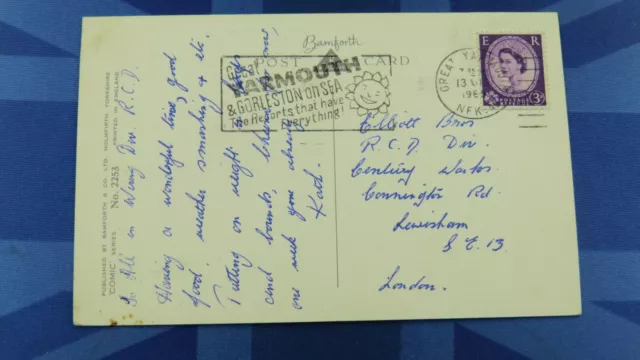 Bamforth
POST CARD
GREAT
YARMOUTH
& GORLESTON ON SEA
The Resorts that have
everything!
GREAT YAR
13
196
NFK
E R
3D
PUBLISHED BY BAMFORTH & CO. LTD. HOLMFIRTH, YORKSHIRE
"COMIC" SERIES No. 2253 PRINTED IN ENGLAND
To All in Wiring Div. R.C.D.
Having a wonderful time, good
food. weather smashing & etc.
Putting on weight in leaps
and bounds, Cheerio for now,
one week gone already
Kath.
Elliott Bros
R.C.D Div.
Century Works
Connington Rd
Lewisham
S E 13
London.